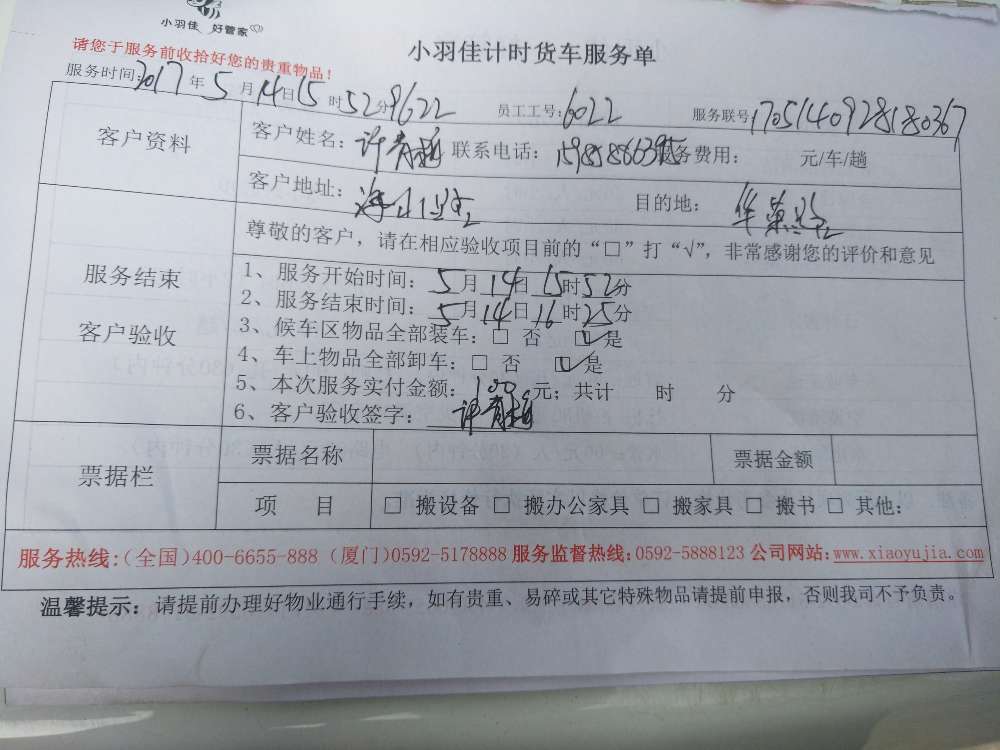 小羽佳 好管家
请您于服务前收拾好您的贵重物品！
小羽佳计时货车服务单
服务时间:2017年5月14日15时52分9622 员工工号:6022 服务联号:170514092818180367
客户资料
客户姓名: 许青 联系电话: 服务费用: 元/车/趟
客户地址: 目的地:
服务结束
客户验收
尊敬的客户，请在相应验收项目前的“□”打“√”，非常感谢您的评价和意见
1、服务开始时间：5月14日15时52分
2、服务结束时间：5月14日16时25分
3、候车区物品全部装车：□ 否 ☑ 是
4、车上物品全部卸车：□ 否 ☑ 是
5、本次服务实付金额：100元；共计 时 分
6、客户验收签字：许青
票据栏
票据名称 票据金额
项 目 □ 搬设备 □ 搬办公家具 □ 搬家具 □ 搬书 □ 其他：
服务热线：(全国)400-6655-888 (厦门)0592-5178888 服务监督热线：0592-5888123 公司网站：www.xiaoyujia.com
温馨提示：请提前办理好物业通行手续，如有贵重、易碎或其它特殊物品请提前申报，否则我司不予负责。